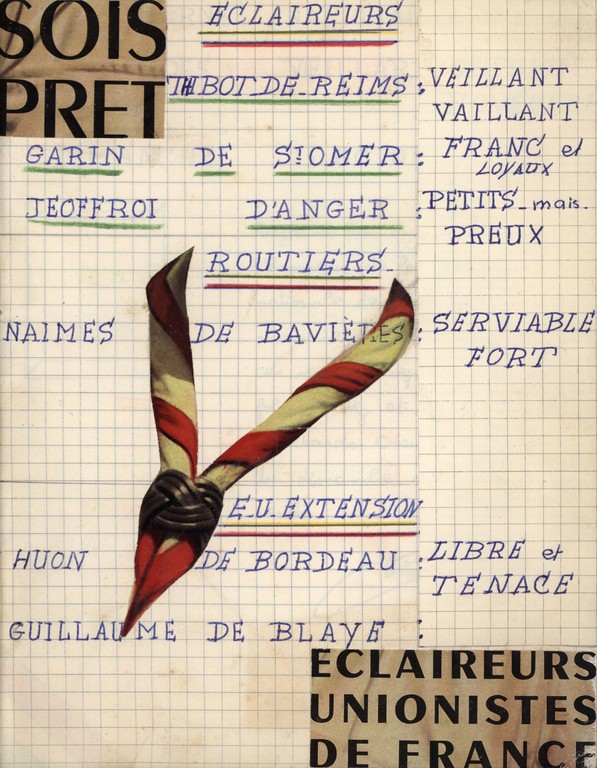 SOIS
PRET
ECLAIREURS
THIBOT DE REIMS : VEILLANT
VAILLANT
GARIN DE St OMER : FRANC et
LOYAUX
JEOFFROI D'ANGER : PETITS - mais -
PREUX
ROUTIERS -
NAIMES DE BAVIÈRES : SERVIABLE
FORT
E.U. EXTENSION
HUON DE BORDEAU : LIBRE et
TENACE
GUILLAUME DE BLAYE :
ECLAIREURS
UNIONISTES
DE FRANCE